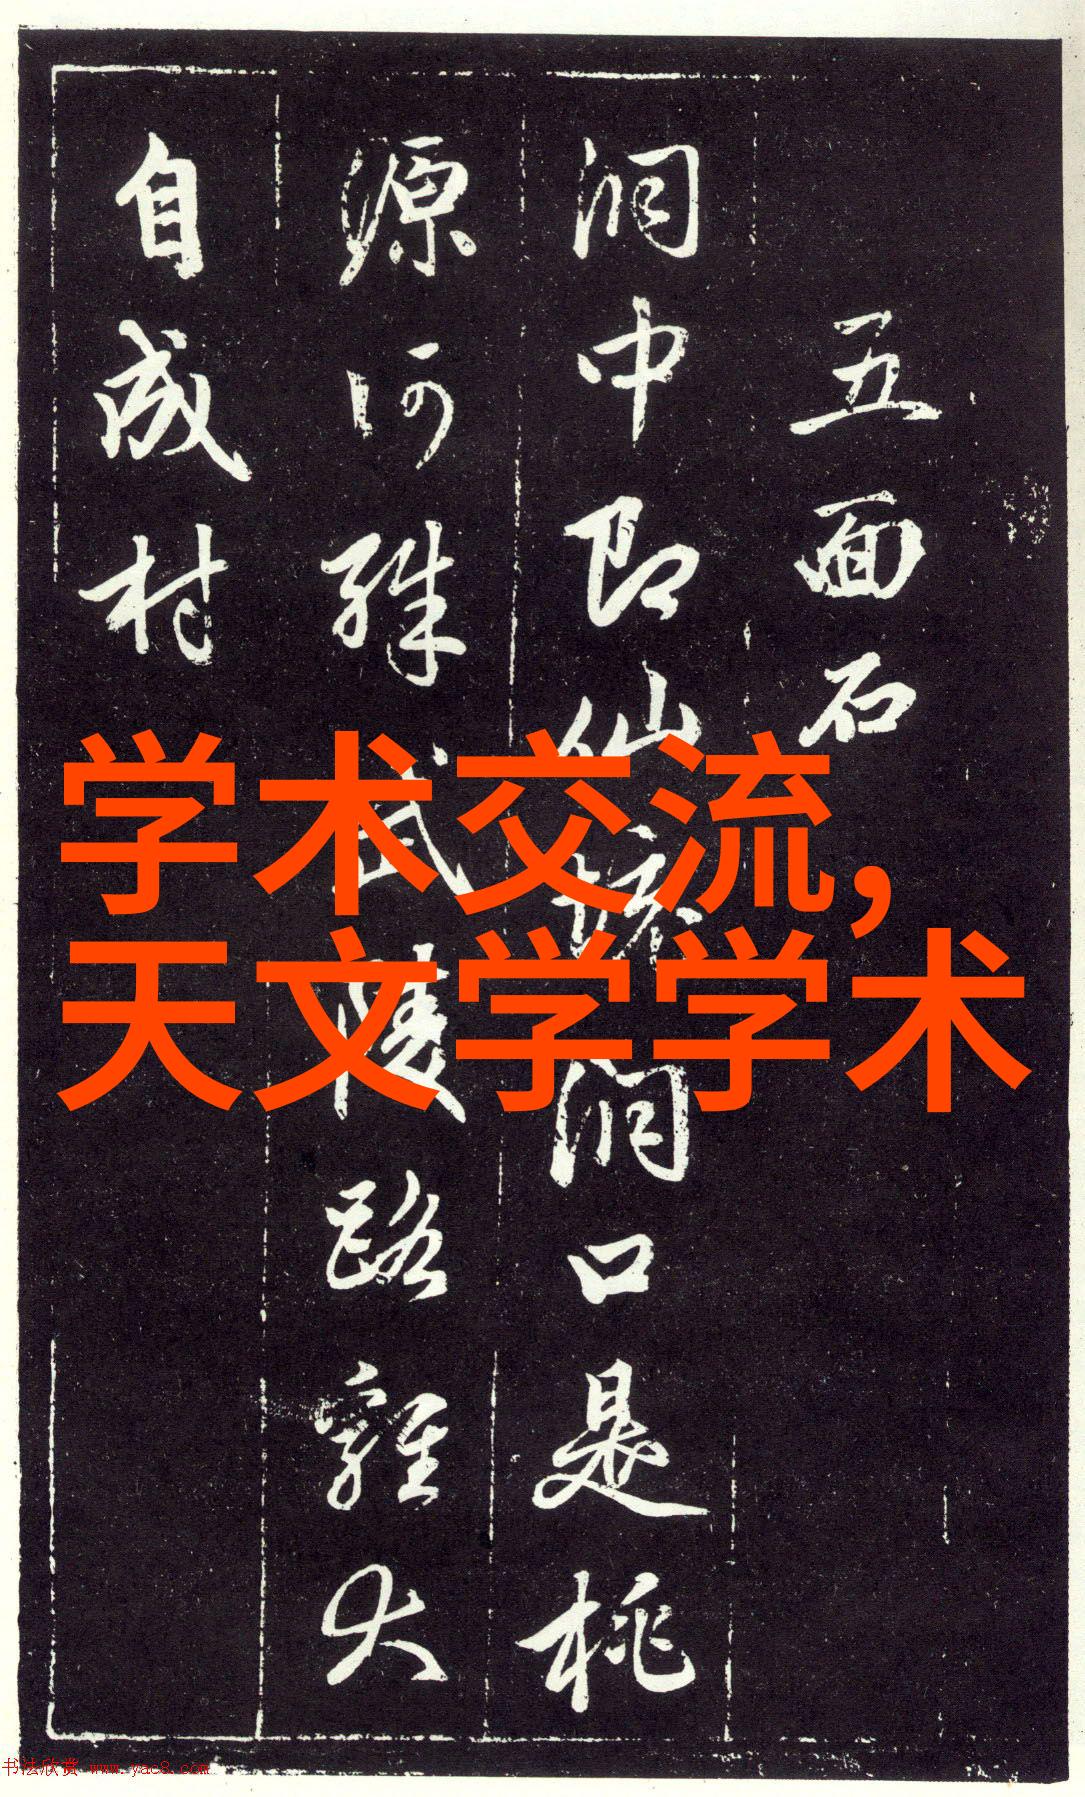 五面石
洞中即仙境洞口是桃
源何殊武陵路雞犬
自成村
学术交流,
天文学学术
书法欣赏 www.yac8.com